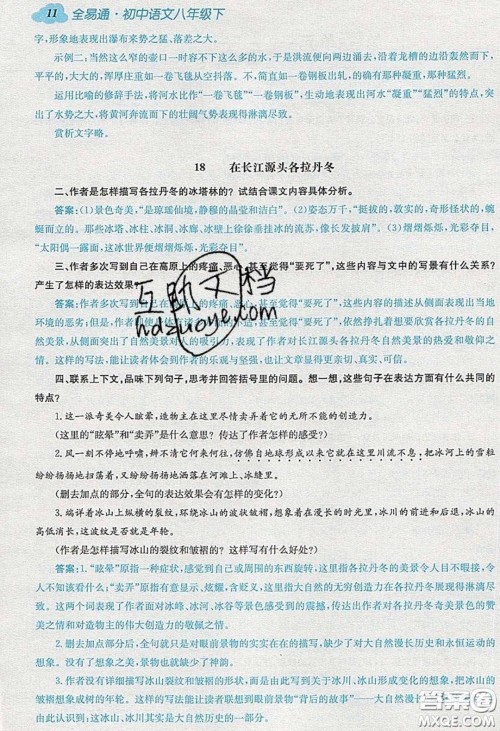 11 全易通·初中语文八年级下
字，形象地表现出瀑布来势之猛、落差之大。
示例二：当然这只是主流。由于是洪流便向两边涌去，沿着龙槽的边沿轰然而下，
平平的，大大的，浑厚庄重如一卷飞毯从空抖落。不，简直如一卷钢板出轧，
运用比喻的修辞手法，将河水比作“一卷飞毯”“一卷钢板”，生动地表现出河水“凝重”“猛烈”的特点，突
出了水势之大，将黄河奔流而下的壮阔气势表现得淋漓尽致。
赏析文字略。
18 在长江源头各拉丹冬
二、作者是怎样描写各拉丹冬的冰塔林的？试结合课文内容具体分析。
答案：(1)景色奇美，“是琼瑶仙境，静穆的晶莹和洁白”。(2)姿态万千，“挺拔的，敦实的，奇形怪状的，蜿
蜒而立的。那些冰塔、冰柱、冰洞、冰廊、冰壁上徐徐垂挂冰的流苏，像长发披肩”。(3)熠熠烁烁，光彩夺目，
“太阳偶一露面，这冰世界便熠熠烁烁，光彩夺目”。
三、作者多次写到自己在高原上的疼痛、恶心，甚至觉得“要死了”，这些内容与文中的写景有什么关系？
产生了怎样的表达效果？
答案：作者多次写到自己的疼痛、恶心，甚至觉得“要死了”，这些内容的描述从侧面表现出当地
环境的恶劣；但与此
自然美景，从侧面突出了自然美景对人的吸引力，表现了作者对长江源头各拉丹冬自然美景的热爱和敬仰之
情。这样的写法，能让读者体会到作者的乐观与坚强，也让文章显得更亲切、真实、可信。
四、联系上下文，品味下列句子，思考并回答括号里的问题。想一想，这些句子在表达方面有什么共同的
特点？
1.这一派奇美令人眩晕，造物主在这里尽情卖弄着它的无所不能的创造力。
(这里的“眩晕”和“卖弄”其实可去掉，为什么要用？传达了作者怎样的感受？)
2.风一刻不停地呼啸，辨不清它何来何去，仿佛自地球形成以来它就在这里川流不息，把冰河上的雪粒
纷纷扬扬地扬起来，又纷纷扬扬地洒落在河滩上、冰缝里。
(删去加点的部分，全句的表达效果会有怎样的变化？)
3.端详着冰山上纵横的裂纹，环绕冰山的波状皱褶，想象着在漫长的时光里，冰川的前进和后退，冰山的
高低消长，这波纹就是年轮。
(作者是怎样描写冰山的裂纹和皱褶的？这样写有什么好处？)
答案：1.“眩晕”原指一种症状，感觉到自己或周围的东西旋转，这里指各拉丹冬的美景令人目不暇接，令
人不知该看什么；“卖弄”原指有意显示、炫耀，含贬义，这里指大自然的无穷创造力在各拉丹冬展现得淋漓尽
致。这两个词表现了作者因冰峰、冰河、冰谷等景色感受到的震撼，传达了作者对各拉丹冬奇美景色的赞
美之情和对大自然造物力的敬佩之情。
2.删去加点部分后，全句就变成了单纯的眼前景物的实写，缺少了对大自然漫长历史和永恒运动的
想象，文章就缺少了一种深邃的历史感、沧桑感。
3.作者没有详细描写冰山裂纹和皱褶的形态，而是借此想象冰川、冰山形成变化的历史，把冰山的
皱褶想象成它的年轮。这样的写法能让读者联想到眼前景物“背后的故事”——大自然的漫长历史，并
由此认识到：这冰山、冰川其实是大自然历史的一部分。
互助文档
hdzuoye.com
答案圈
MXQE.COM